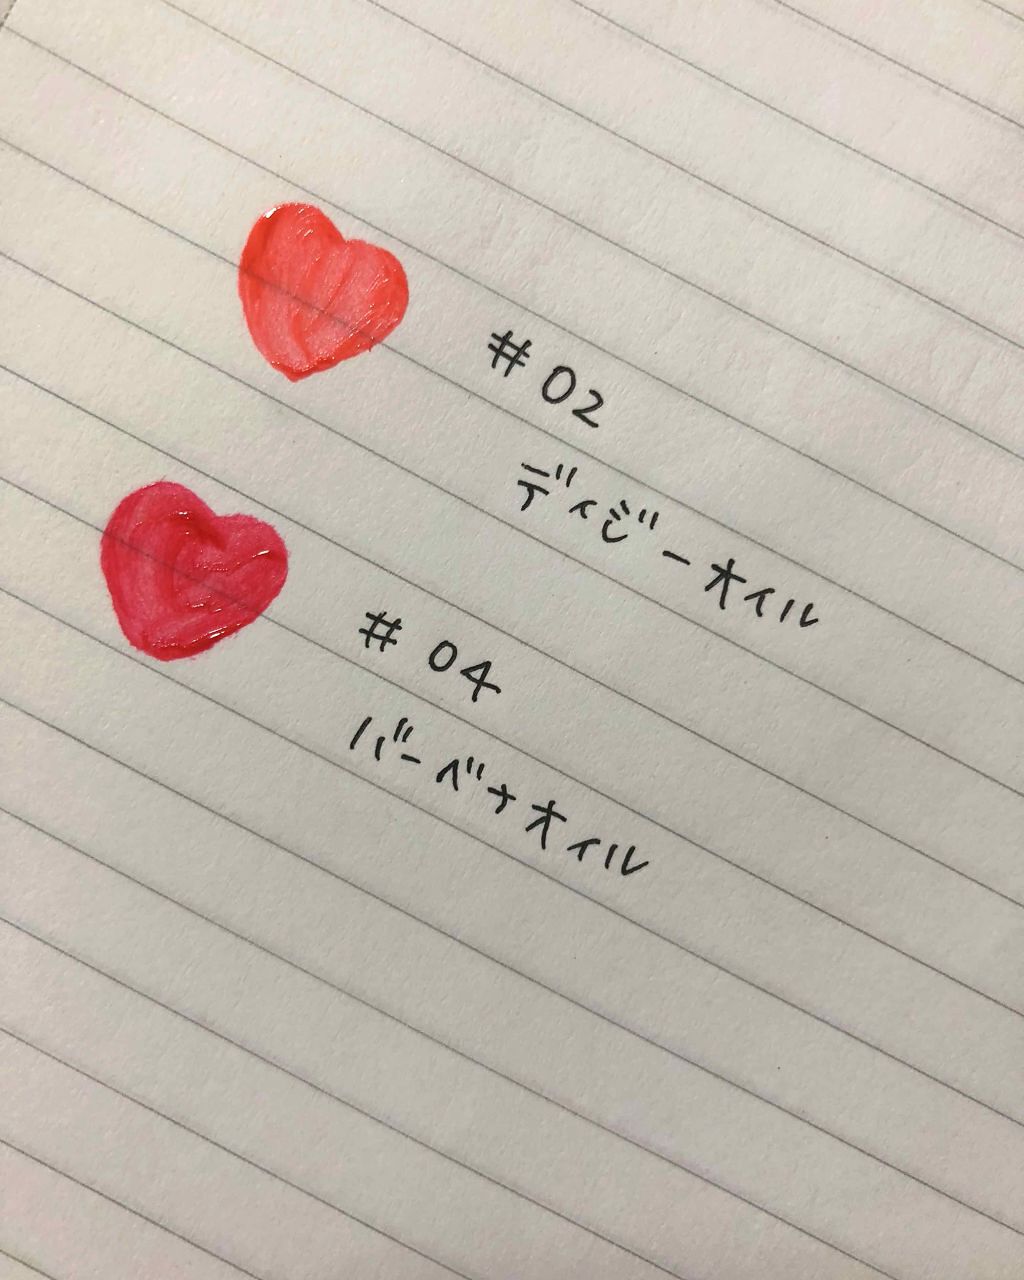 # 02
ディジーオイル
# 04
バーベナオイル